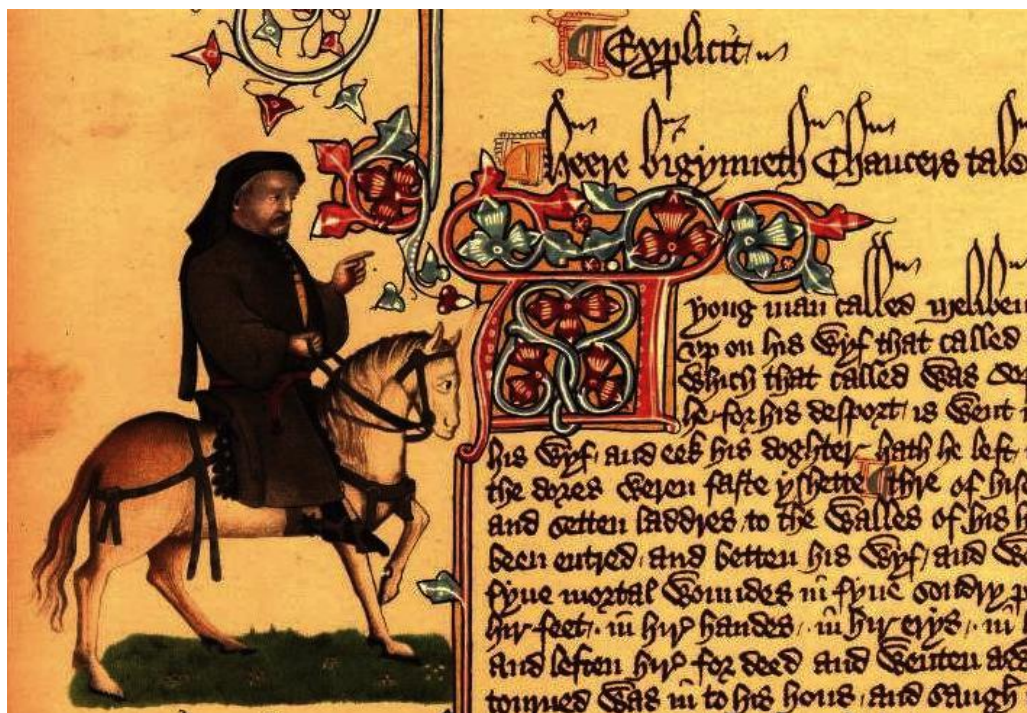 Explicit
Heere bigynneth Chaucers tale
A yong man called Melibeu
vp on his wyf that called
which that called was
he for his desport / is went
his wyf / and eek his doghter / hath he left /
the dores weren faste yshette / thre of his
and setten laddres / to the walles of his
been entred / and betten his wyf / and
fyue mortal woundes in fyue sondry
hir feet / in hir handes / in hir erys / in
and leften hir for deed and wenten
torned was in to his hous / and saugh